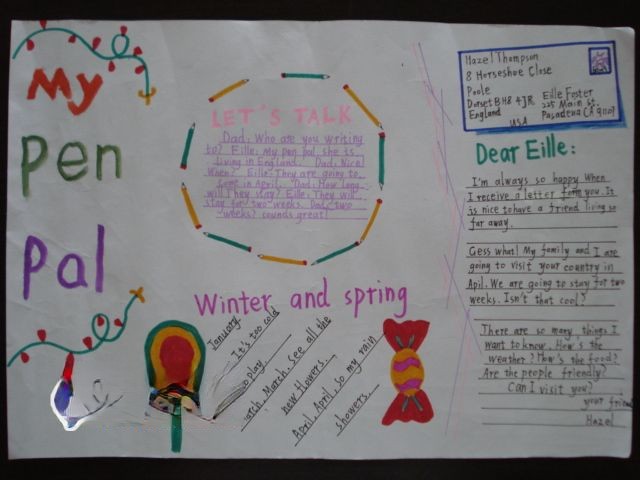 My
Pen
Pal
LET'S TALK
Dad: Who are you writing
to? Eille: My pen pal, she is
living in England. Dad: Nice!
When? Eille: They are going to
come in April. Dad: How long
will They stay? Eille: They will
stay for two weeks. Dad: two
weeks? counds great!
Winter and spring
January
It's too cold
o play
arch, March. See all the
new flowers.
April April, so my rain
showers.
Hazel Thompson
8 Horseshoe Close
Poole
Dorset BH8 4JR
England
Eille Foster
225 Main St.
Pasadena CA 91107
USA
Dear Eille:
I'm always so happy When
I receive a letter form you. It
is nice to have a friend living so
far away.
Gess what! My family and I are
going to visit your country in
Apil. We are going to stay for two
weeks. Isn't that cool?
There are so many things I
want to know. How's the
weather? How's the food?
Are the people friendly?
Can I visit you?
your frien
Hazel